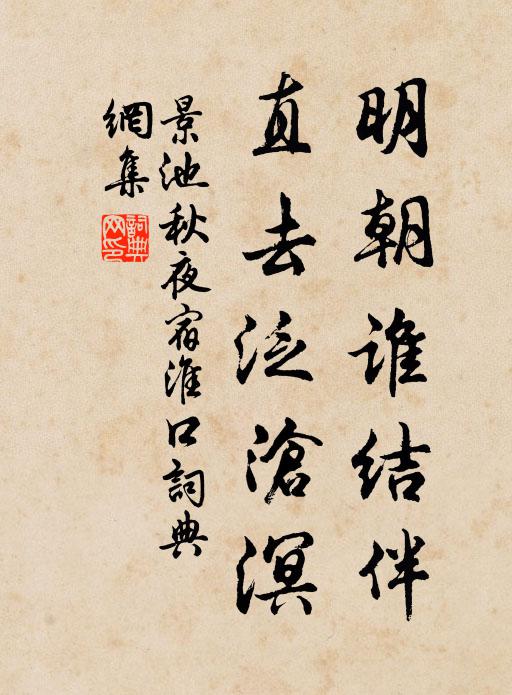 明朝誰結伴
直去泛滄溟
景池秋夜宿淮口詞典
網集
詞典網印